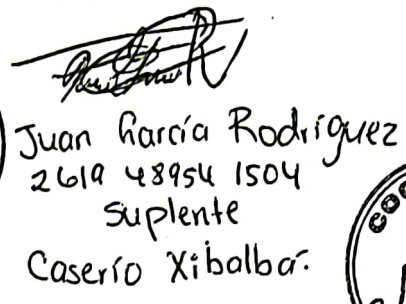 Juan García Rodríguez
2619 48954 1504
Suplente
Caserío Xibalbá.
CO